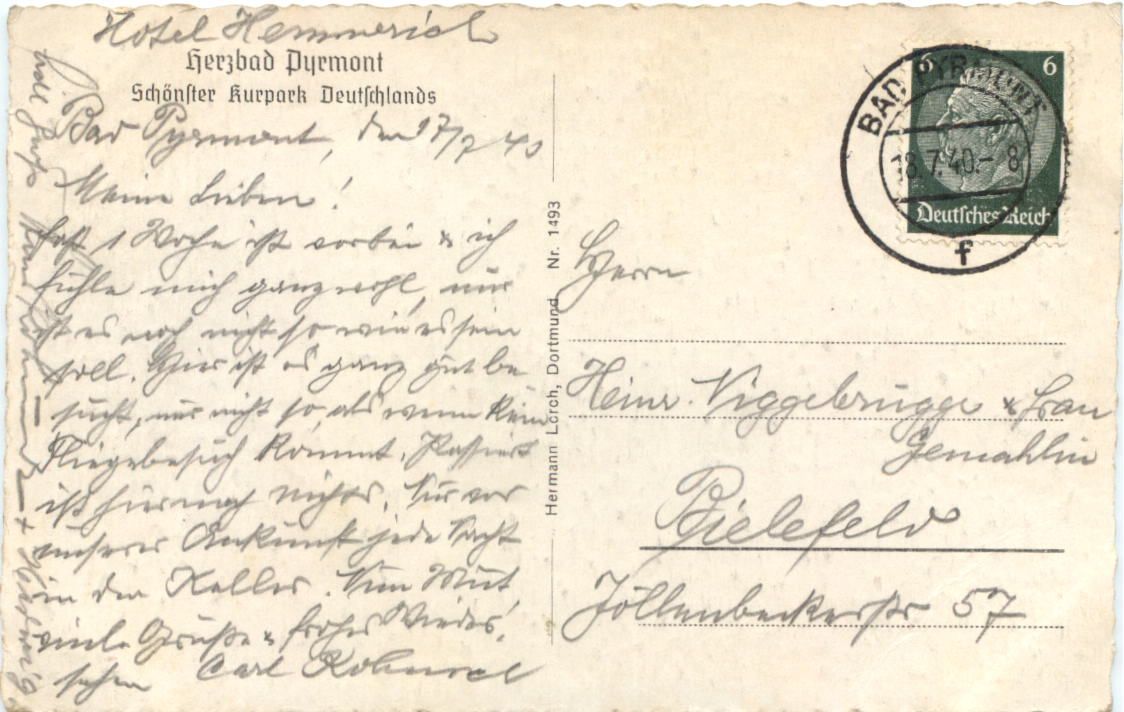 Hotel Hemmerich
Herzbad Pyrmont
Schönster Kurpark Deutschlands
Bad Pyrmont, den 17/7 40
Meine Lieben!
Fast 1 Woche ist vorbei & ich
fühle mich ganz wohl, nur
ist es noch nicht so wie es sein
soll. Hier ist es ganz gut be
sucht, nur nicht so als wenn kein
Fliegerbesuch kommt. Passiert
ist hier noch nichts. Nur vor
unserer Ankunft jede Nacht
in den Keller. Nun Mut,
viele Grüße & frohes Wieder,
sehen Carl
Hermann Lorch, Dortmund Nr. 1493
BAD PYRMONT
18.7.40.- 8
f
6 6
Deutsches Reich
Herrn
Heinr. Niggebrügge & Frau
Gemahlin
Bielefeld
Jöllenbeckerstr 57